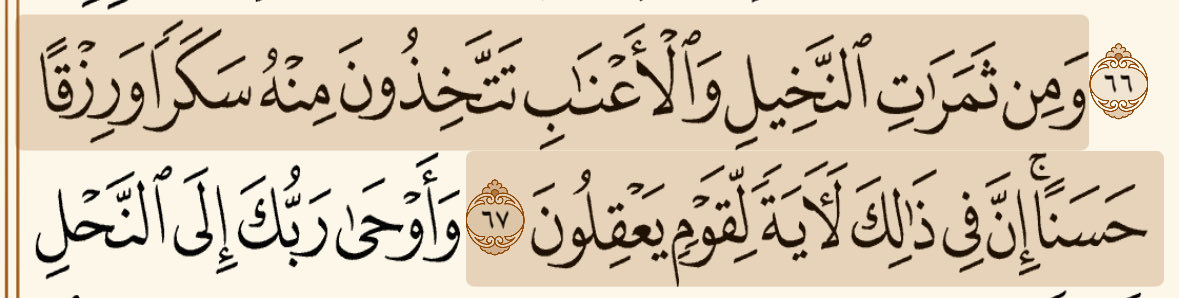 ٦٦ وَمِن ثَمَرَٰتِ ٱلنَّخِيلِ وَٱلْأَعْنَٰبِ تَتَّخِذُونَ مِنْهُ سَكَرًا وَرِزْقًا
حَسَنًا ۚ إِنَّ فِى ذَٰلِكَ لَـَٔايَةً لِّقَوْمٍ يَعْقِلُونَ ٦٧ وَأَوْحَىٰ رَبُّكَ إِلَى ٱلنَّحْلِ